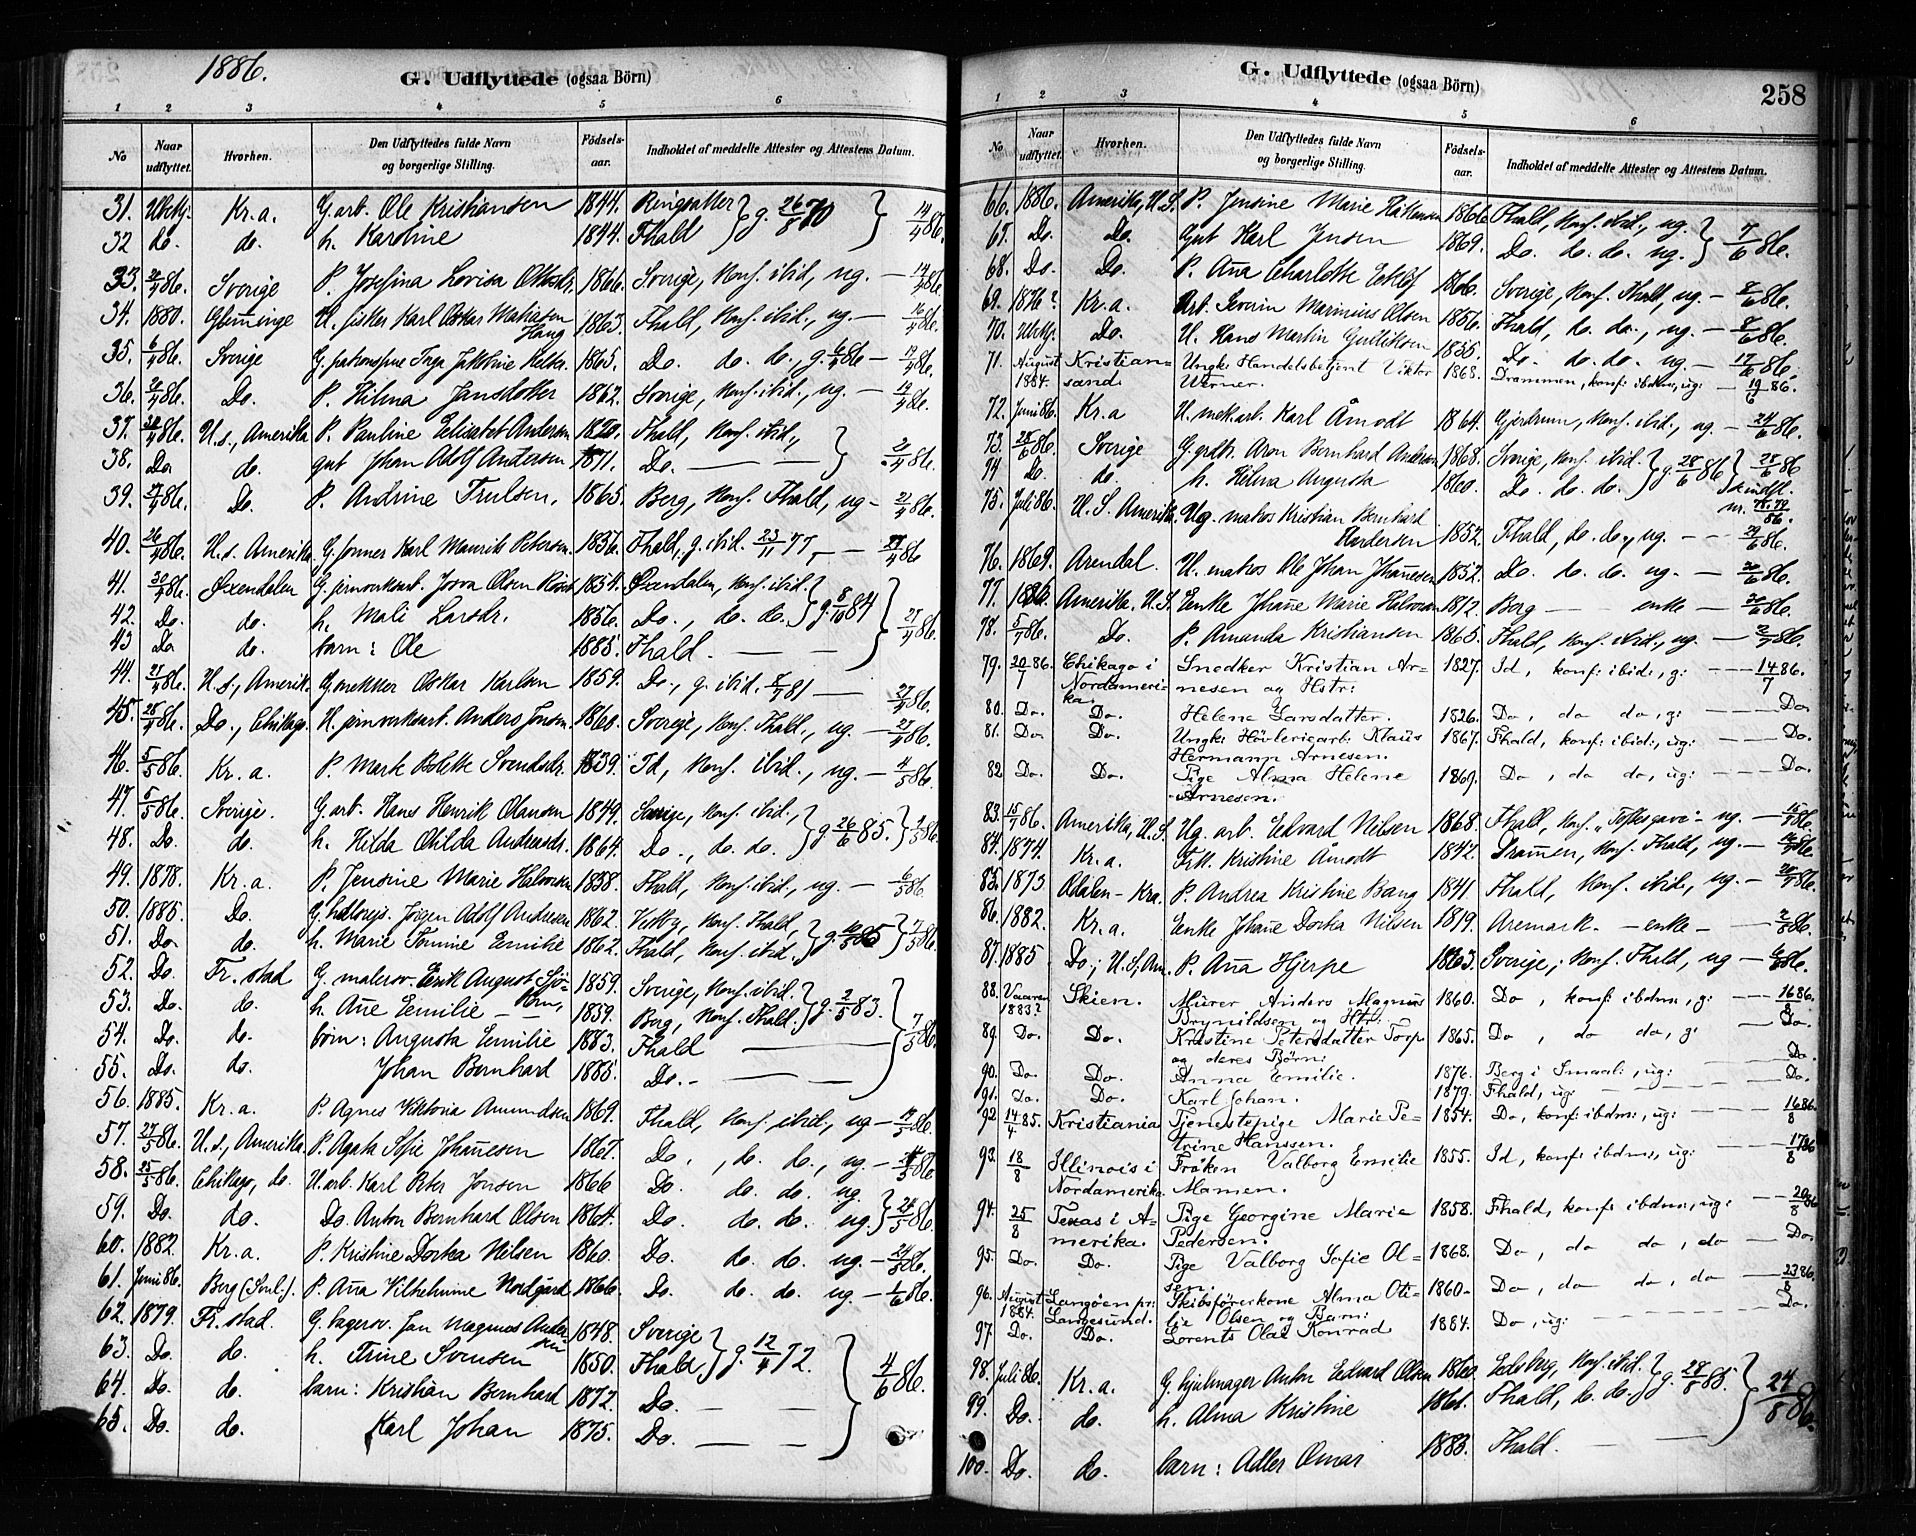 1886.
G. Udflyttede (ogsaa Börn)
1 2 3 4 5 6
No Naar udflyttet. Hvorhen. Den Udflyttedes fulde Navn og borgerlige Stilling. Födsels-aar. Indholdet af meddelte Attester og Attestens Datum.
31. Kr.a. G. arb. Ole Kristiansen 1844. Ringsaker } g. 26/5 70 } 14/4 86.
32 do. do. h. Karoline 1844. Fhald
33. 86. Sverige P. Josefina Lovisa Ottosdr. 1866. Sverige, konf. ibid., ug. — 14/4 86.
34. 1880. Glemminge U. fisker Karl Oskar Mathisen 1863. Fhald, konf. ibid., ug. — 16/4 86.
Haug
35. 6/4 86. Sverige 1865. Do. do. do., g. 6/4 86 — 86.
36. 86. Do. P. Hilma Jansdotter 1862. Sverige, konf. ibid., ug. — 86.
37. 86. U.s., Amerika P. Pauline Elisabet Andersen Fhald, konf. ibid., } 86.
38. Do. do. gut Johan Adolf Andersen 1871. Do. — —
39. 86. Do. P. Andrine Trulsen. 1865. Berg, konf. Fhald, ug — 21/4 86.
40. 26/4 86. U.s. Amerika G. former Karl Maurits Petersen 1856. Fhald, g. ibid. 23/11 77, — 86
41. 30/4 86. Øxendalen 1854. Øxendalen, konf. ibid. } g. 8/10 84 } 27/4 86.
42. Do. do. h. Mali Larsdr. 1856. Do., do. do.
43 Do do. barn: Ole 1885. Fhald. — —
44. 86. U.s., Amerik. Oskar Karlsen 1859. Do., g. ibid. 81 — 27/4 86.
45. 28/4 86. Do., Chikago. U. jernverksarb. Anders Jonsen 1860. Sverige, konf. Fhald., ug. — 27/4 86.
46. 5/5 86. Kr.a. P. Marte Bolette Svendsdr. 1839. Id, konf. ibid., ug. — 4/5 86.
47. 5/5 86. Sverige. G. arb. Hans Henrik Olausen 1849. Sverige, konf. ibid., } g. 26/6 85. } 86.
48. Do. do. h. Hilda Otilda Andreasdr. 1864. Do., do. do.
49. 1878. Kr.a. P. Jensine Marie Halvorsen 1858. Fhald, konf. ibid., ug. — 6/5 86
50. 1885. Do. Jørgen Adolf Andersen 1862. konf. Fhald, } 7/5 86.
51. Do. do. h. Marie Tomine Emilie 1862. Fhald, konf. ibid.
52. Do. Fr.stad G. malersv. Erik August Sjö- 1859. Sverige, konf. ibid. } g. 2/5 83. } 7/5 86.
53. Do. do. h. Ane Emilie — 1859. Berg, konf. Fhald.
54. Do. do. børn: Augusta Emilie 1883. Fhald —
55. Do. do. Johan Bernhard 1885. Do. — —
56. 1885. Kr.a. P. Agnes Viktoria Amundsen 1869. Fhald, konf. ibid., ug — 86.
57. 27/5 86. U.s., Amerika. P. Agate Sofie Johannesen 1867. Do., do. do., ug. — 86
58. 25/5 86. Chikago, do. U. arb. Karl Peter Jonsen 1866 Do. do. do. ug. } 86.
59. Do. do. Do. Anton Bernhard Olsen 1864. Do. do. do. ug.
60. 1882. Kr.a. P. Kristine Dortea Nilsen 1860. Do. do. do. ug. — 24/5 86.
61. Juni 86. Berg (Sml.). P. Ana Vilhelmine Nordgård 1866. Do. do. do. ug — 1/6 86.
62. 1879. Fr.stad. G. bagersv. Jan Magnus Ander- 1848. Sverige } g. 12/4 72. } 4/6 86.
sen
63. Do. do. h. Trine Svensen 1850. Fhald
64. Do. do. barn: Kristian Bernhard 1872. Do. — —
65. Do. do. Karl Johan 1875. Do. — —
G. Udflyttede (ogsaa Börn)
258
1 2 3 4 5 6
No Naar udflyttet. Hvorhen. Den Udflyttedes fulde Navn og borgerlige Stilling. Födsels-aar. Indholdet af meddelte Attester og Attestens Datum.
66. 1886. Amerika, U.S. P. Jensine Marie Håkensen 1866. Fhald, konf. ibid., ug. } 7/6 86.
67. Do. Do. Gut Karl Jensen 1869. Do. do. do. ug.
68. Do. Do. P. Ana Charlotte Eklöf 1866. Sverige, konf. Fhald, ug — 86.
69. 1876? Kr.a. Arb. Severin Marinius Olsen 1856. Fhald, do. do., ug. — 8/6 86.
70. Do. U. Hans Martin Gulliksen 1855. Do. do. do. ug. — 17/6 86.
71. August Kristian- Ungk: Handelsbetjent Viktor 1868. Drammen, konf: ibdm, ug: — 19/6 86.
1884. sand. Werner.
72. Juni 86. Kr.a U. mek.arb. Karl Åmodt 1864. Gjerdrum, konf. ibid., ug — 24/6 86.
73. 28/6 86. Sverige Aron Bernhard 1868. Sverige, konf. ibid. } g. 28/6 86 } 28/6 86
74 Do. do. h. Hilma Augusta 1860. Do. do. do.
75. Juli 86. U.S. Amerika. Ug. matros Kristian Bernhard
Andersen 1852. Fhald, do. do., ug. — — 29/6 86.
76. 1869. Arendal. U. matros Ole Johan Johannesen 1852. Do. do. do. ug. — 86.
77. 1886. Amerika, U.S. Enke Johanne Marie Halvorsen 1812. Borg — enke — 86.
78. 5/7 86. Do. P. Amanda Kristiansen 1865. Fhald, konf. ibid., ug. — 2/7 86.
79. 20/7 86. Chikago i Snedker Kristian Ar- 1827. Id, konf: ibid:, g: — — 14/7 86.
Nordameri- nesen og Hstr:
ka.
80. Do. Do. Helene Larsdatter. 1826. Do, do do, g: — — Do.
81. Do. Do. Ungk: Høvleriarb: Klaus 1867. Fhald, konf: ibid:, ug: — Do.
Hermann Arnesen.
82 Do. Do. Pige Alma Helene 1869. Do, do do, ug: — — Do.
Arnesen.
83. 15/7 86. Amerika, U.S. Ug. arb. Edvard Nilsen 1868. Fhald, konf. "Toftesgave" ug. — 15/7 86.
84. 1874. Kr.a. Frk. Kristine Åmodt 1842. Dramen, konf. Fhald, ug. — 86.
85. 1873 Adalen - Kra. P. Andrea Kristine Bang 1841. Fhald, konf. ibid., ug — 86.
86. 1882. Kr.a. Enke Johane Dorthea Nilsen 1819. Aremark. — enke — 2/8 86.
87. 1885 Do.; U.S, Am. P. Ana Hjerpe 1863. Sverige; konf. Fhald, ug — 86.
88. Vaaren Skien. Murer Anders Magnus 1860. Do, konf: ibdm:, g: — — 16/8 86.
1883? Brynildsen og Hstr:
89. Do. Do. Kristine Petersdatter Torp 1865. Do, do do, g: — Do.
og deres Børn:
90. Do. Do. Anna Emilie. 1876. Berg i Smaal:, ug: — — Do.
91. Do. Do. Karl Johan. 1879. Fhald, ug: — Do.
92 14/4 85. Kristiania Tjenestepige Marie Pe- 1854. Do, konf: ibdm:, ug: — — 16/8 86.
trine Hanssen.
93. 18/8 Illinois i Frøken Valborg Emilie 1855. Id, konf: ibdm:, ug: — — 17/8 86
Nordamerika. Mamen.
94. 25/8 Texas i A- Pige Georgine Marie 1858. Fhald, konf: ibdm:, ug: — — 20/8 86
merika. Pedersen.
95. Do. Do. Pige Valborg Sofie Ol- 1868. Do, do do, do — Do.
sen.
96. August Langøen pr: Skibsførerkone Alma Oti- 1860. Do, do do, do — 23/8 86.
1884. Langesund. lie Olsen og Barn:
97. Do. Do. Lorents Olai Konrad 1884. Do, ug: — — — Do.
98. Juli 86. Kr.a. G. hjulmager Anton Edvard Olsen 1860. Edsberg, konf. ibid. } g. 28/8 85. } 24/8 86.
99. Do. do. h. Alma Kristine 1861. Fhald, do. do.
100. Do. do. barn: Adler Omar 1883. Fhald. — —